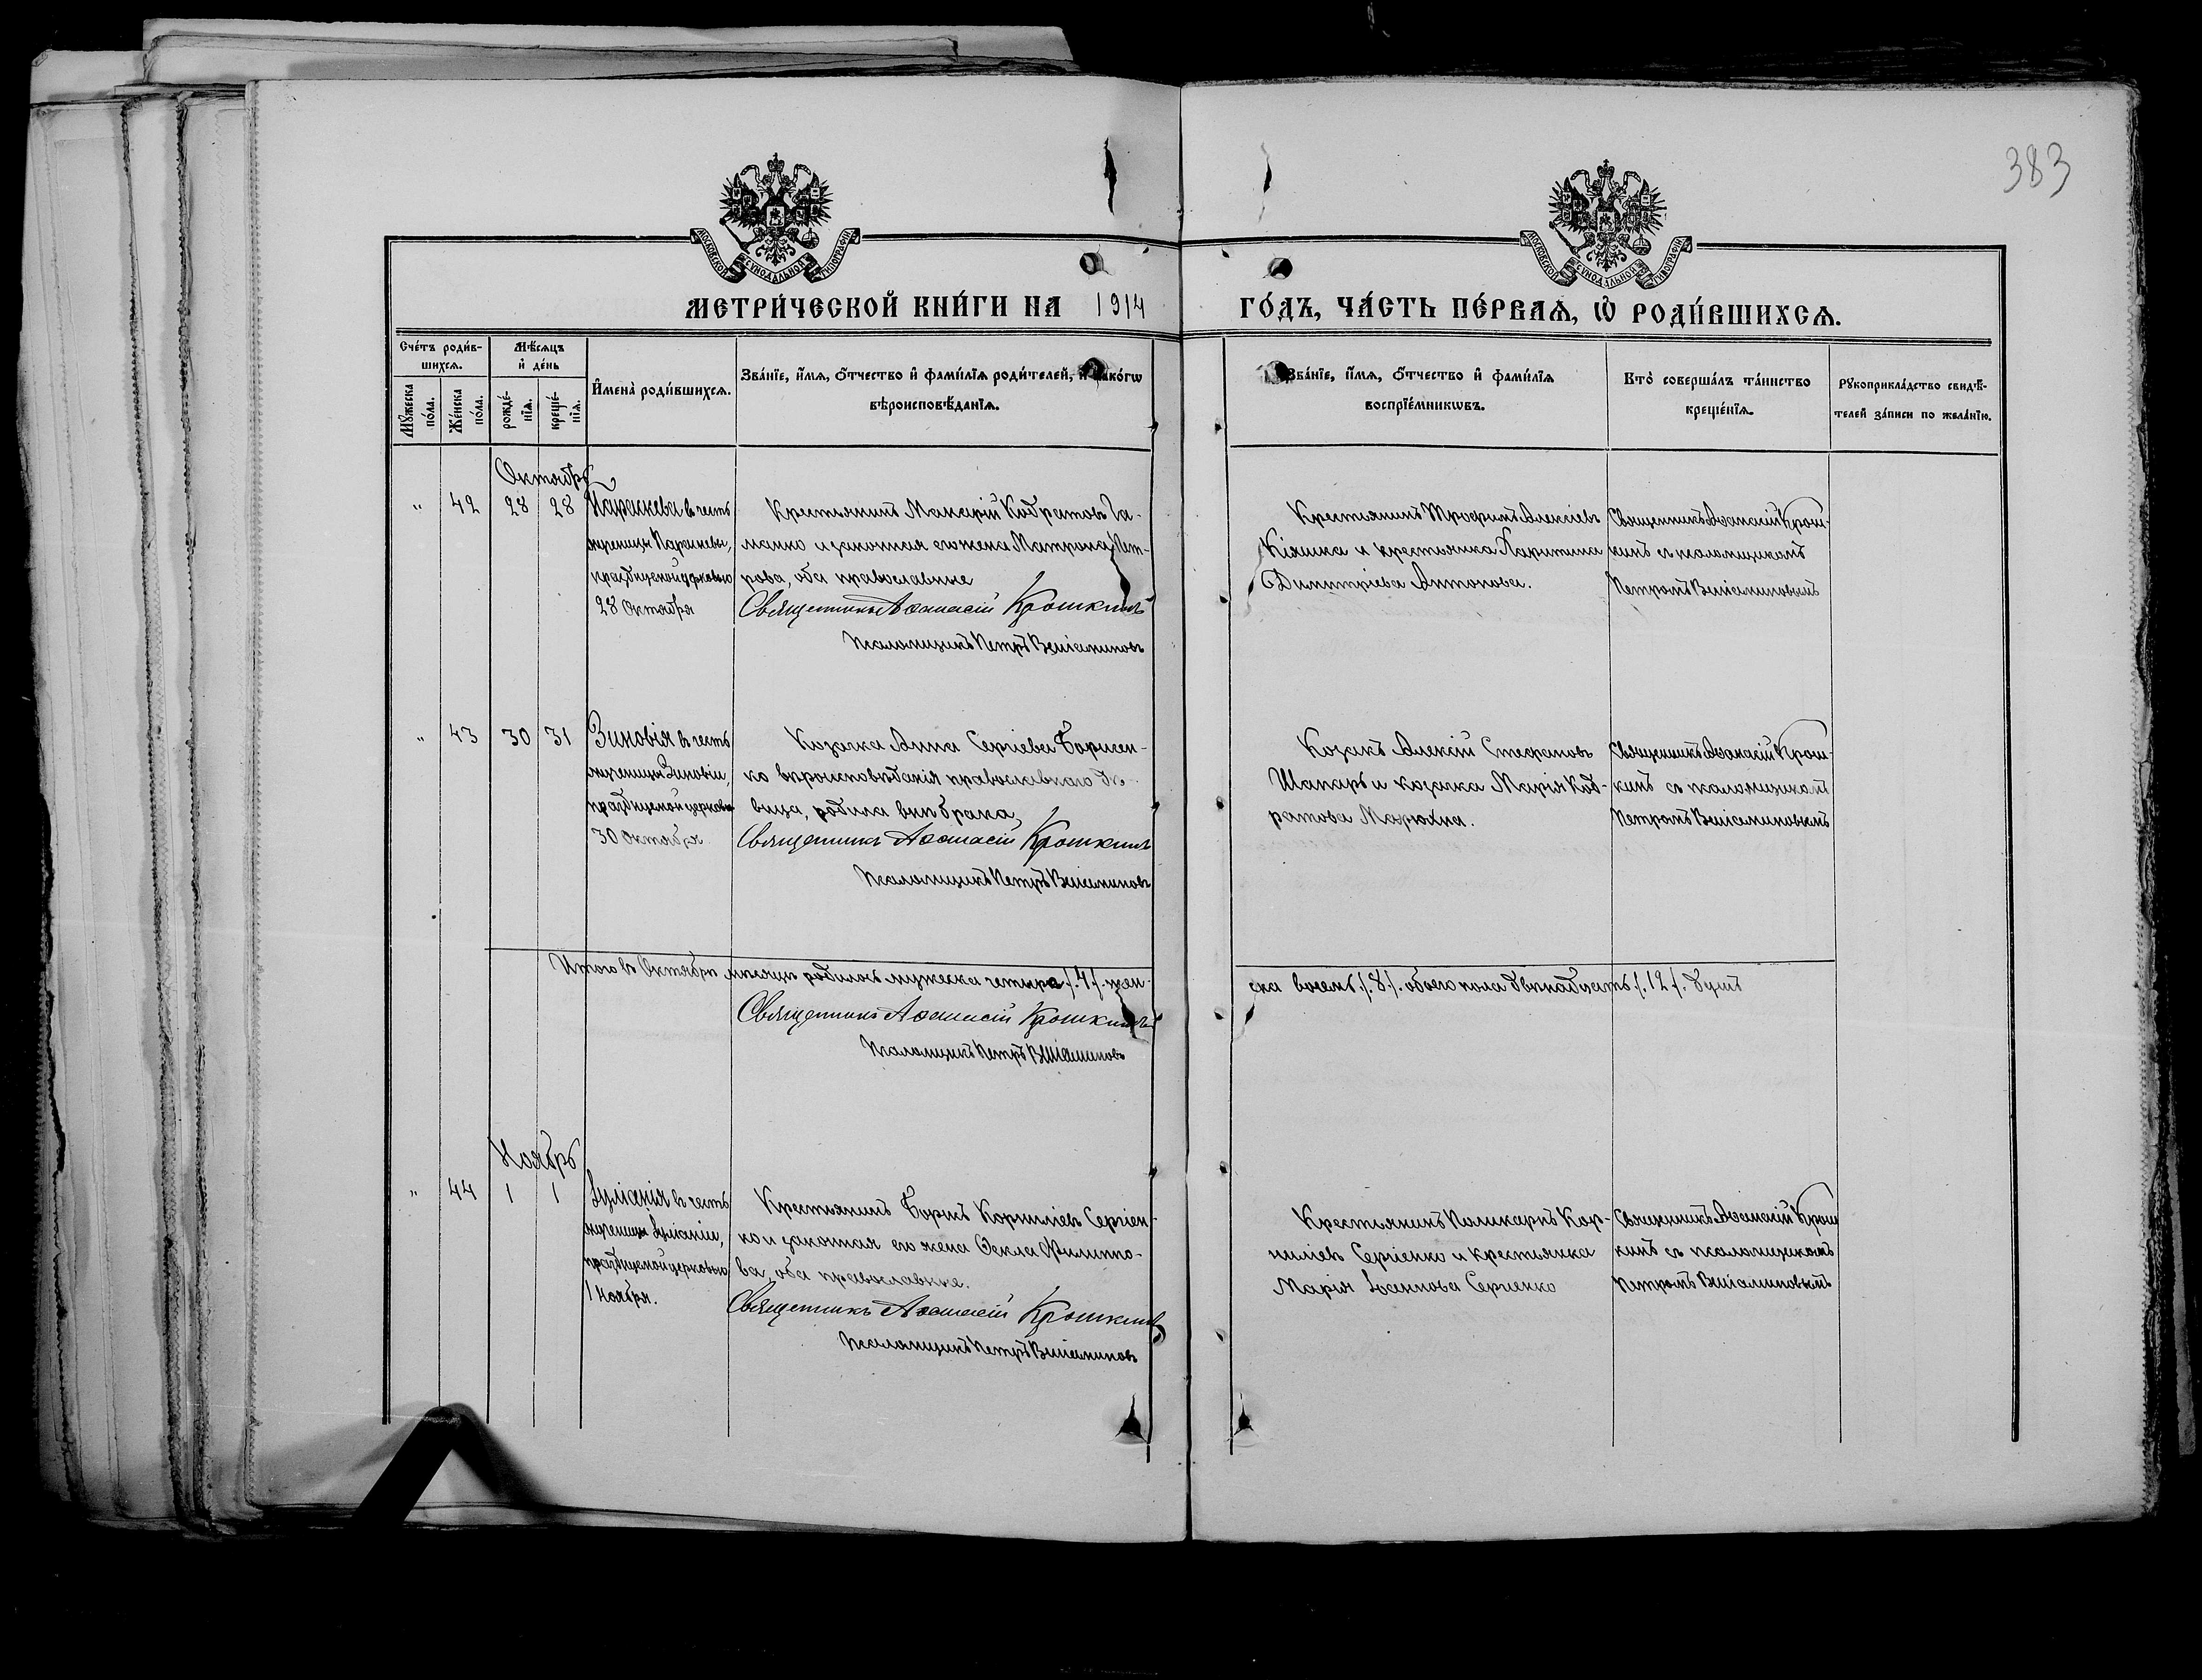 383
МОСКОВСКОЙ СѴНОДАЛЬНОЙ ТИПОГРАФІИ
МОСКОВСКОЙ СѴНОДАЛЬНОЙ ТИПОГРАФІИ
МЕТРИ́ЧЕСКОЙ КНИ́ГИ НА 1914
ГО́ДЪ, ЧА́СТЬ ПЕ́РВАѦ, Ѡ҆ РОДИ́ВШИХСѦ.
Сче́тъ роди́в-
шихсѧ.
Мꙋ́жеска
по́ла.
Же́нска
по́ла.
Мѣ́сѧцъ
и҆ де́нь
рожде́-
нїѧ.
креще́-
нїѧ.
И҆мена̀ роди́вшихсѧ.
Зва́нїе, и҆́мѧ, ѻ҆́тчество и҆ фами́лїѧ роди́телей, и҆ како́гѡ
вѣроисповѣ́данїѧ.
Зва́нїе, и҆́мѧ, ѻ҆́тчество и҆ фами́лїѧ
воспрїе́мникѡвъ.
Кто̀ соверша́лъ та́инство
креще́нїѧ.
Рꙋкоприкла́дство свидѣ́-
телей за́писи по жела́нїю.
Октябрь
" 42 28 28
Параскева въ честь
мученицы Параскевы,
празднуемой церковью
28 Октября
Крестьянинъ Макарій Кодратовъ Га-
манко и законная его жена Матрона Пет-
рова, оба православные
Священникъ Аѳанасій Крошкинъ
Псаломщикъ Петръ Веніаминовъ
Крестьянинъ Трофимъ Алексіевъ
Кіяшка и крестьянка Харитина
Димитріева Антонова.
Священникъ Аѳанасій Крош-
кинъ съ псаломщикомъ
Петромъ Веніаминовымъ
" 43 30 31
Зиновія въ честь
мученицы Зиновіи,
празднуемой церковью
30 Октября
Козачка Анна Сергіева Борисен-
ко вѣроисповѣданія православнаго дѣ-
вица, родила внѣ брака,
Священникъ Аѳанасій Крошкинъ
Псаломщикъ Петръ Веніаминовъ
Козакъ Алексій Стефановъ
Шапарь и козачка Марія Код-
ратова Марюхна.
Священникъ Аѳанасій Крош-
кинъ съ псаломщикомъ
Петромъ Веніаминовымъ
Итого въ Октябрѣ мѣсяцѣ родилось мужеска четыре /.4/. жен-
ска восемь /.8/. обоего пола двѣнадцать /.12/. душъ
Священникъ Аѳанасій Крошкинъ
Псаломщикъ Петръ Веніаминовъ
Ноябрь
" 44 1 1
Іуліанія въ честь
мученицы Іуліаніи,
празднуемой церковью
1 Ноября.
Крестьянинъ Борисъ Корниліевъ Сергіен-
ко и законная его жена Ѳекла Филиппо-
ва, оба православные.
Священникъ Аѳанасій Крошкинъ
Псаломщикъ Петръ Веніаминовъ
Крестьянинъ Поликарпъ Кор-
ниліевъ Сергіенко и крестьянка
Марія Іоаннова Сергіенко
Священникъ Аѳанасій Крош
кинъ съ псаломщикомъ
Петромъ Веніаминовымъ